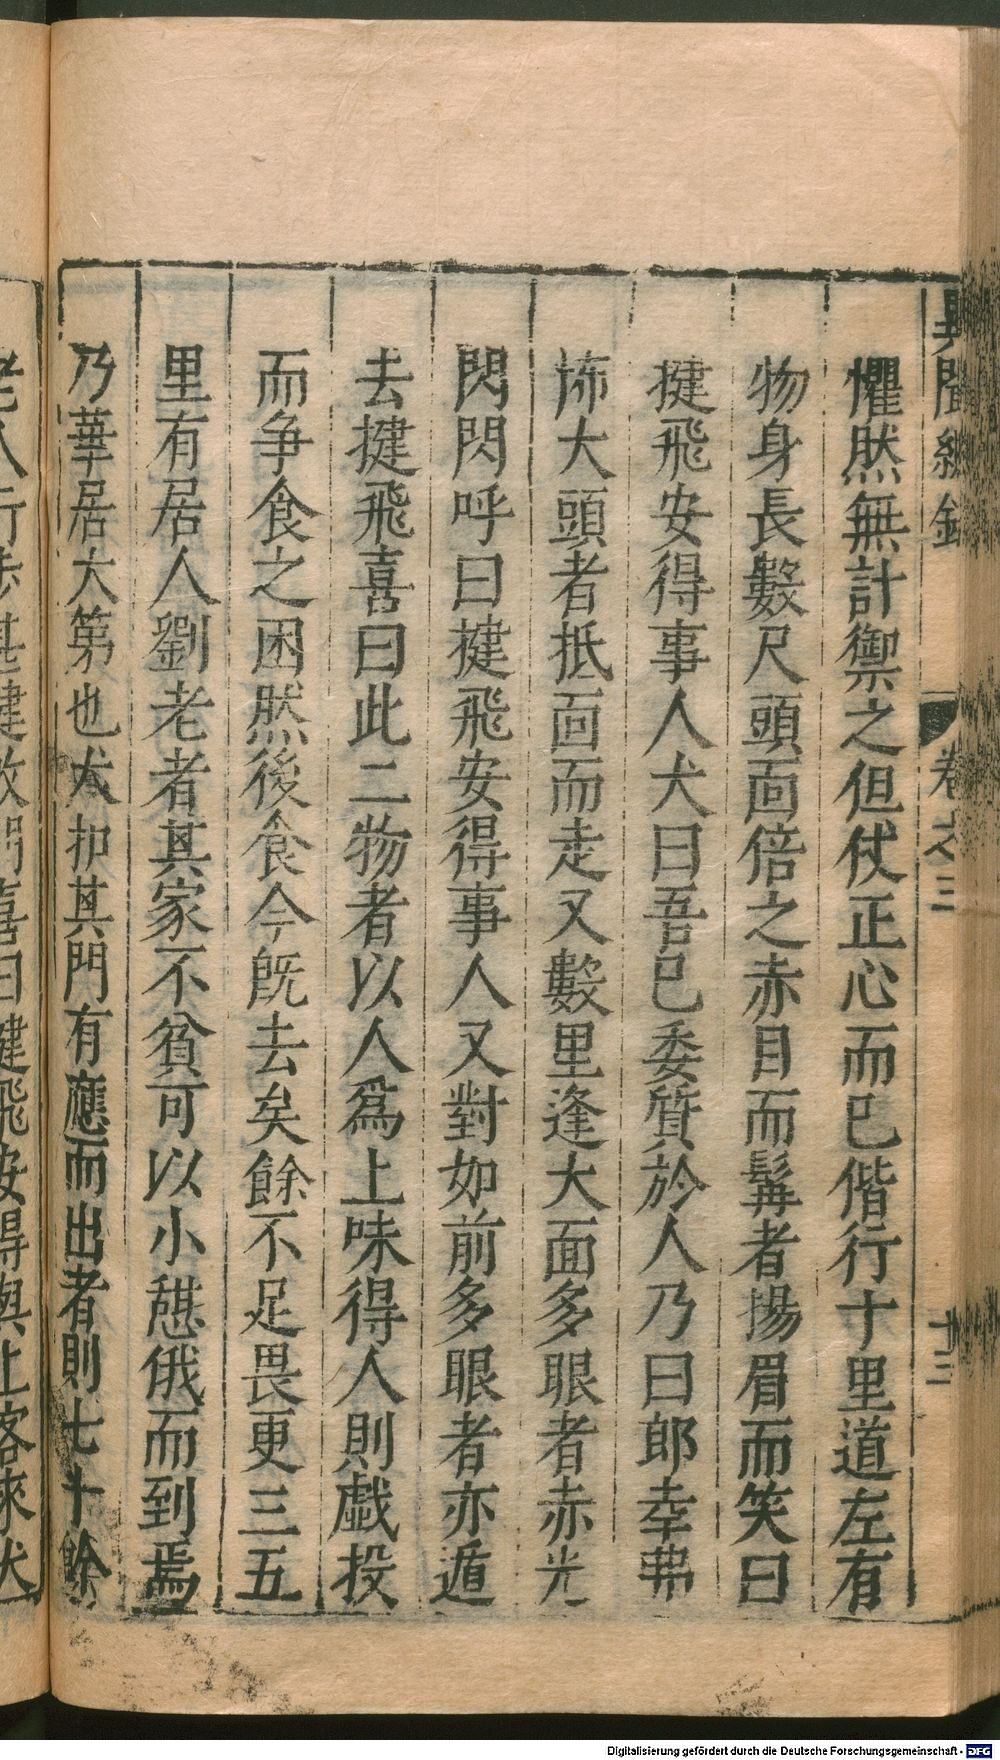 異聞總錄 卷之三 十二
懼然無計禦之但仗正心而已偕行十里道左有
物身長數尺頭面倍之赤目而髯者揚眉而笑曰
揵飛安得事人犬曰吾已委質於人乃曰郎幸弗
怖大頭者抵面而走又數里逢大面多眼者赤光
閃閃呼曰揵飛安得事人又對如前多眼者亦遁
去揵飛喜曰此二物者以人爲上味得人則戲投
而争食之困然後食今旣去矣餘不足畏更三五
里有居人劉老者其家不貧可以小憩俄而到焉
乃華居大第也犬扣其門有應而出者則七十餘
老人行步甚健啟門喜曰揵飛安得與上客來犬
Digitalisierung gefördert durch die Deutsche Forschungsgemeinschaft - DFG